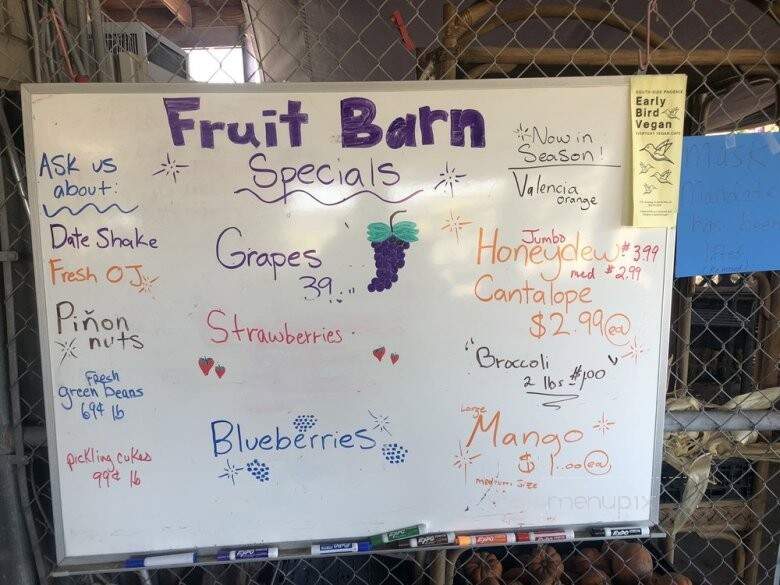 Fruit Barn
Specials
ASK us
about:
Date Shake
Fresh OJ
Piñon
nuts
Fresh
green beans
69¢ lb
pickling cukes
99¢ lb
Grapes
39
Strawberries
Blueberries
Now in
Season!
Valencia
orange
Jumbo
Honeydew $3.99
med $2.99
Cantalope
$2.99 ea
"Broccoli"
2 lbs $1.00
Large
Mango
$1.00 ea
medium size
SOUTH-SIDE PHOENIX
Early
Bird
Vegan
menupix
EXPO
EXPO
EXPO
EXPO
EXPO
EXPO